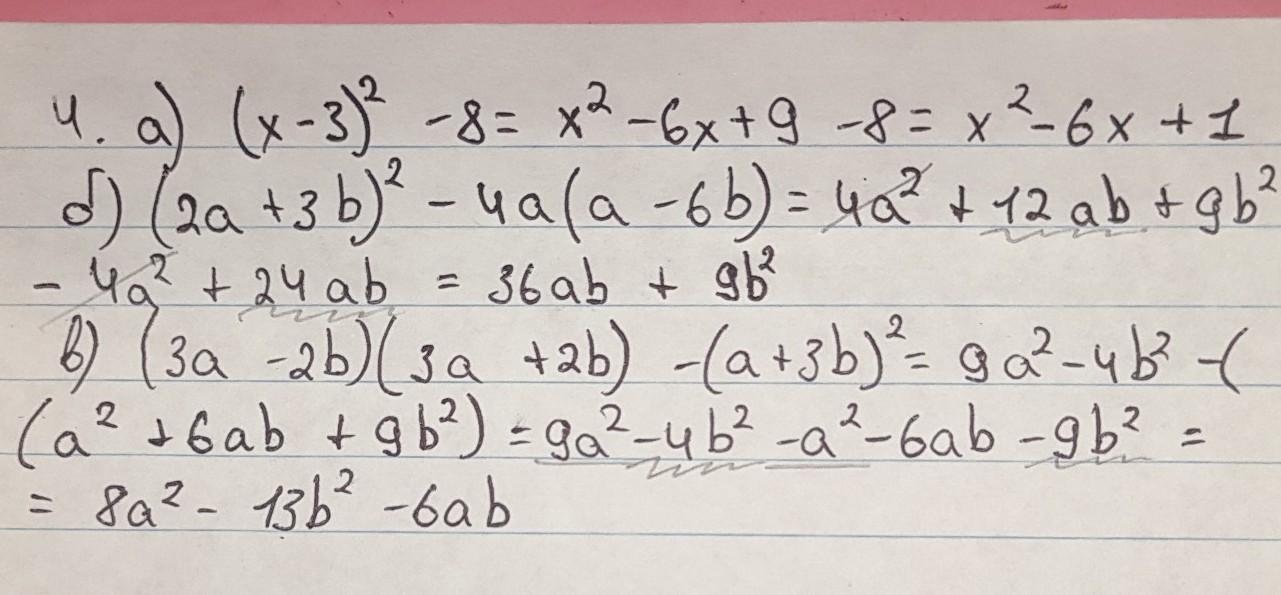 4. а) (x-3)² -8= x² -6x+9 -8= x²-6x+1
б) (2a+3b)² - 4a(a -6b)= 4a² + 12ab + 9b²
- 4a² + 24ab = 36ab + 9b²
в) (3a -2b)(3a +2b) -(a+3b)²= 9a²-4b² -(
(a² +6ab + 9b²) =9a²-4b² -a²-6ab -9b² =
= 8a² - 13b² -6ab